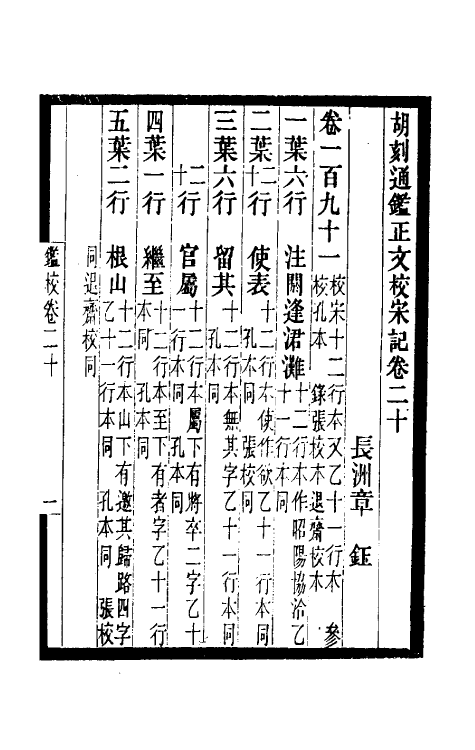 胡刻通鑑正文校宋記卷二十
長洲章 鈺
卷一百九十一 校宋十二行本又乙十一行本 參
校孔本 錄張校本退齋校本
一葉六行 注閼逢涒灘 十二行本作昭陽協洽乙
十一行本同
二葉十二行 使表 十二行本使作欲乙十一行本同
孔本同 張校同
三葉六行 留其 十二行本無其字乙十一行本同
孔本同
十二行 官屬 十二行本屬下有將卒二字乙十
一行本同 孔本同
四葉一行 繼至 十二行本至下有者字乙十一行
本同 孔本同
五葉二行 根山 十二行本山下有邀其歸路四字
乙十一行本同 孔本同 張校
同退齋校同
鑑校卷二十 一